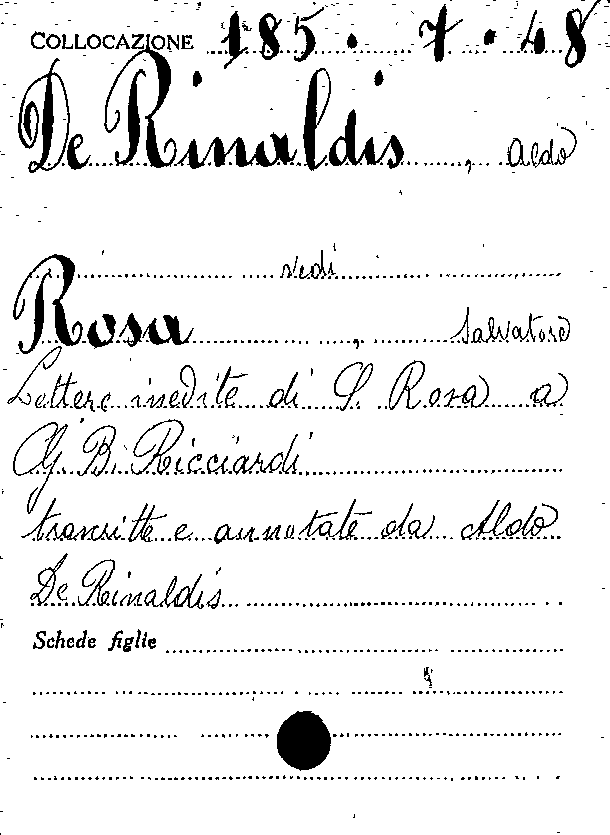 COLLOCAZIONE 185. 7. 48
De Rinaldis, Aldo
vedi
Rosa, Salvatore
Lettere inedite di S. Rosa a
G. B. Ricciardi
trascritte e annotate da Aldo
De Rinaldis
Schede figlie